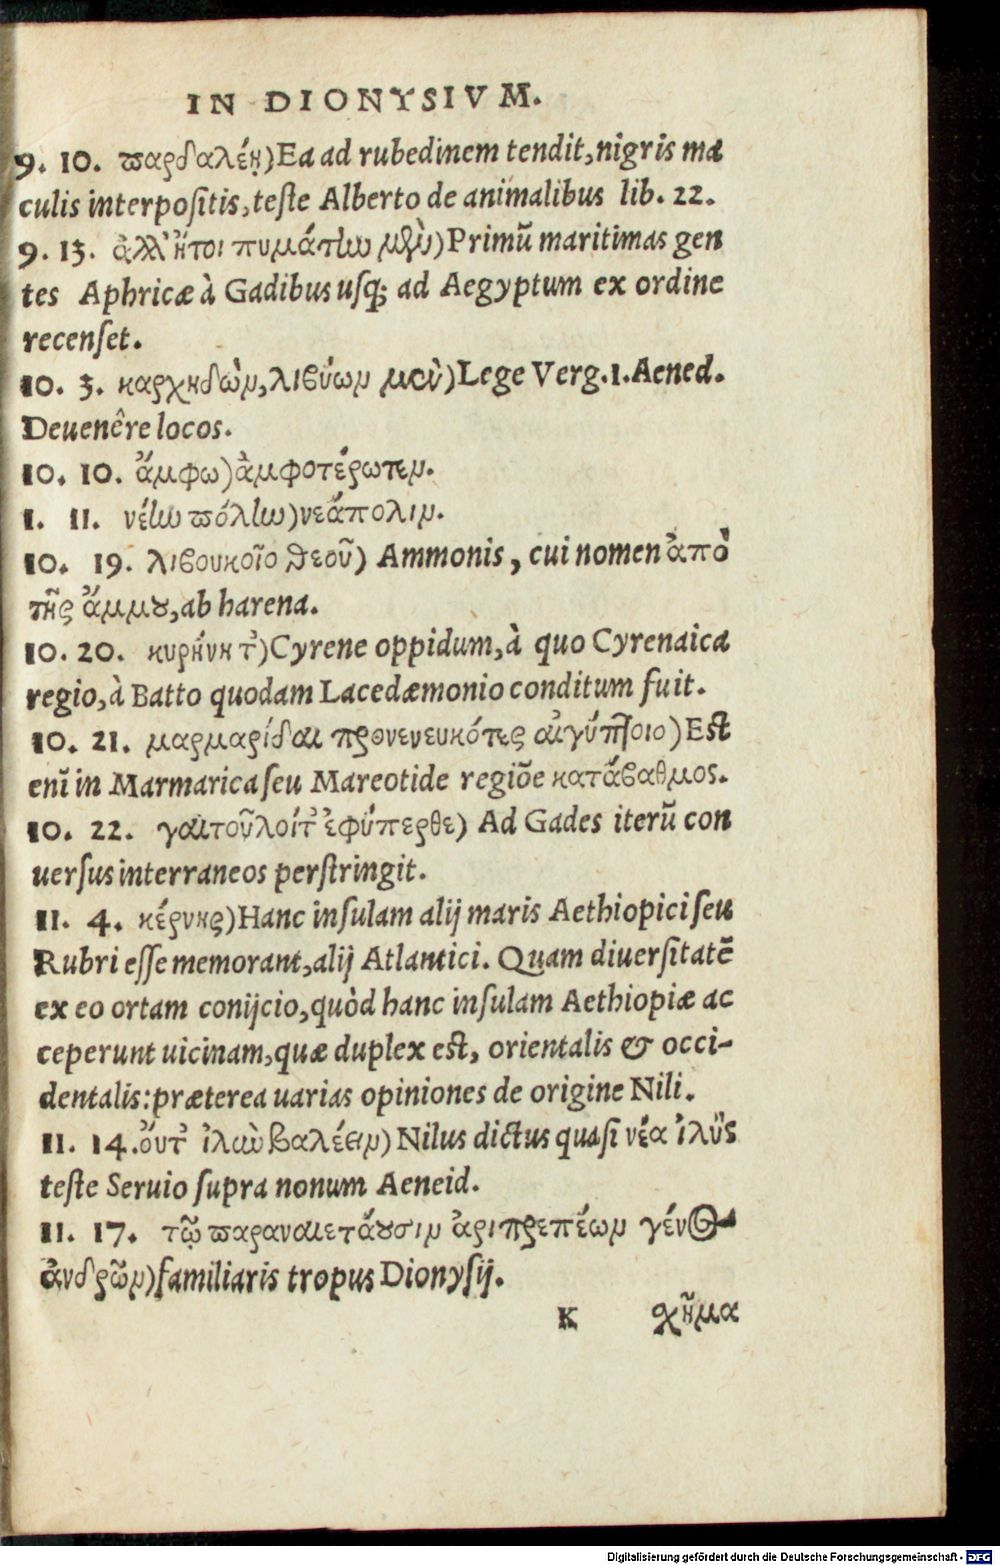 IN DIONYSIVM.
9. 10. παρδαλέῃ)Ea ad rubedinem tendit,nigris ma
culis interpositis,teste Alberto de animalibus lib. 22.
9. 13. ἀλλ' ἤτοι πυμάτην μὲν)Primũ maritimas gen
tes Aphricæ à Gadibus usq; ad Aegyptum ex ordine
recenset.
10. 3. καρχηδὼν,λιβύων μὲν)Lege Verg.1.Aened.
Deuenêre locos.
10. 10. ἄμφω)ἀμφοτέρωθεν.
1. 11. νέην πόλιν)νεάπολιν.
10. 19. λιβυκοῖο θεοῦ) Ammonis, cui nomen ἀπὸ
τῆς ἄμμου,ab harena.
10. 20. κυρήνη τ')Cyrene oppidum,à quo Cyrenaica
regio,à Batto quodam Lacedæmonio conditum fuit.
10. 21. μαρμαρίδαι προνενευκότες αἰγύπτοιο)Est
enĩ in Marmarica seu Mareotide regiõe κατάβαθμος.
10. 22. γαιτοῦλοί τ' ἐφύπερθε) Ad Gades iterũ con
uersus interraneos perstringit.
11. 4. κέρνης)Hanc insulam alij maris Aethiopici seu
Rubri esse memorant,alij Atlantici. Quam diuersitatẽ
ex eo ortam conijcio,quòd hanc insulam Aethiopiæ ac
ceperunt uicinam,quæ duplex est, orientalis & occi-
dentalis:præterea uarias opiniones de origine Nili.
11. 14.ὅυτ' ἰλὺν βαλέεθν)Nilus dictus quasi νέα ἰλὺς
teste Seruio supra nonum Aeneid.
11. 17. τῷ παραναιετάουσιν ἀριπρεπέων γένος
ἀνδρῶν)familiaris tropus Dionysij.
K σχῆμα
Digitalisierung gefördert durch die Deutsche Forschungsgemeinschaft - DFG